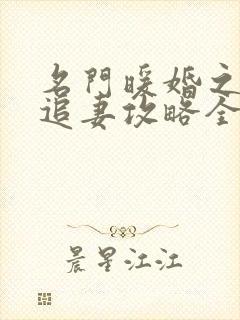 名門暖婚之
追妻攻略全
晨星江江